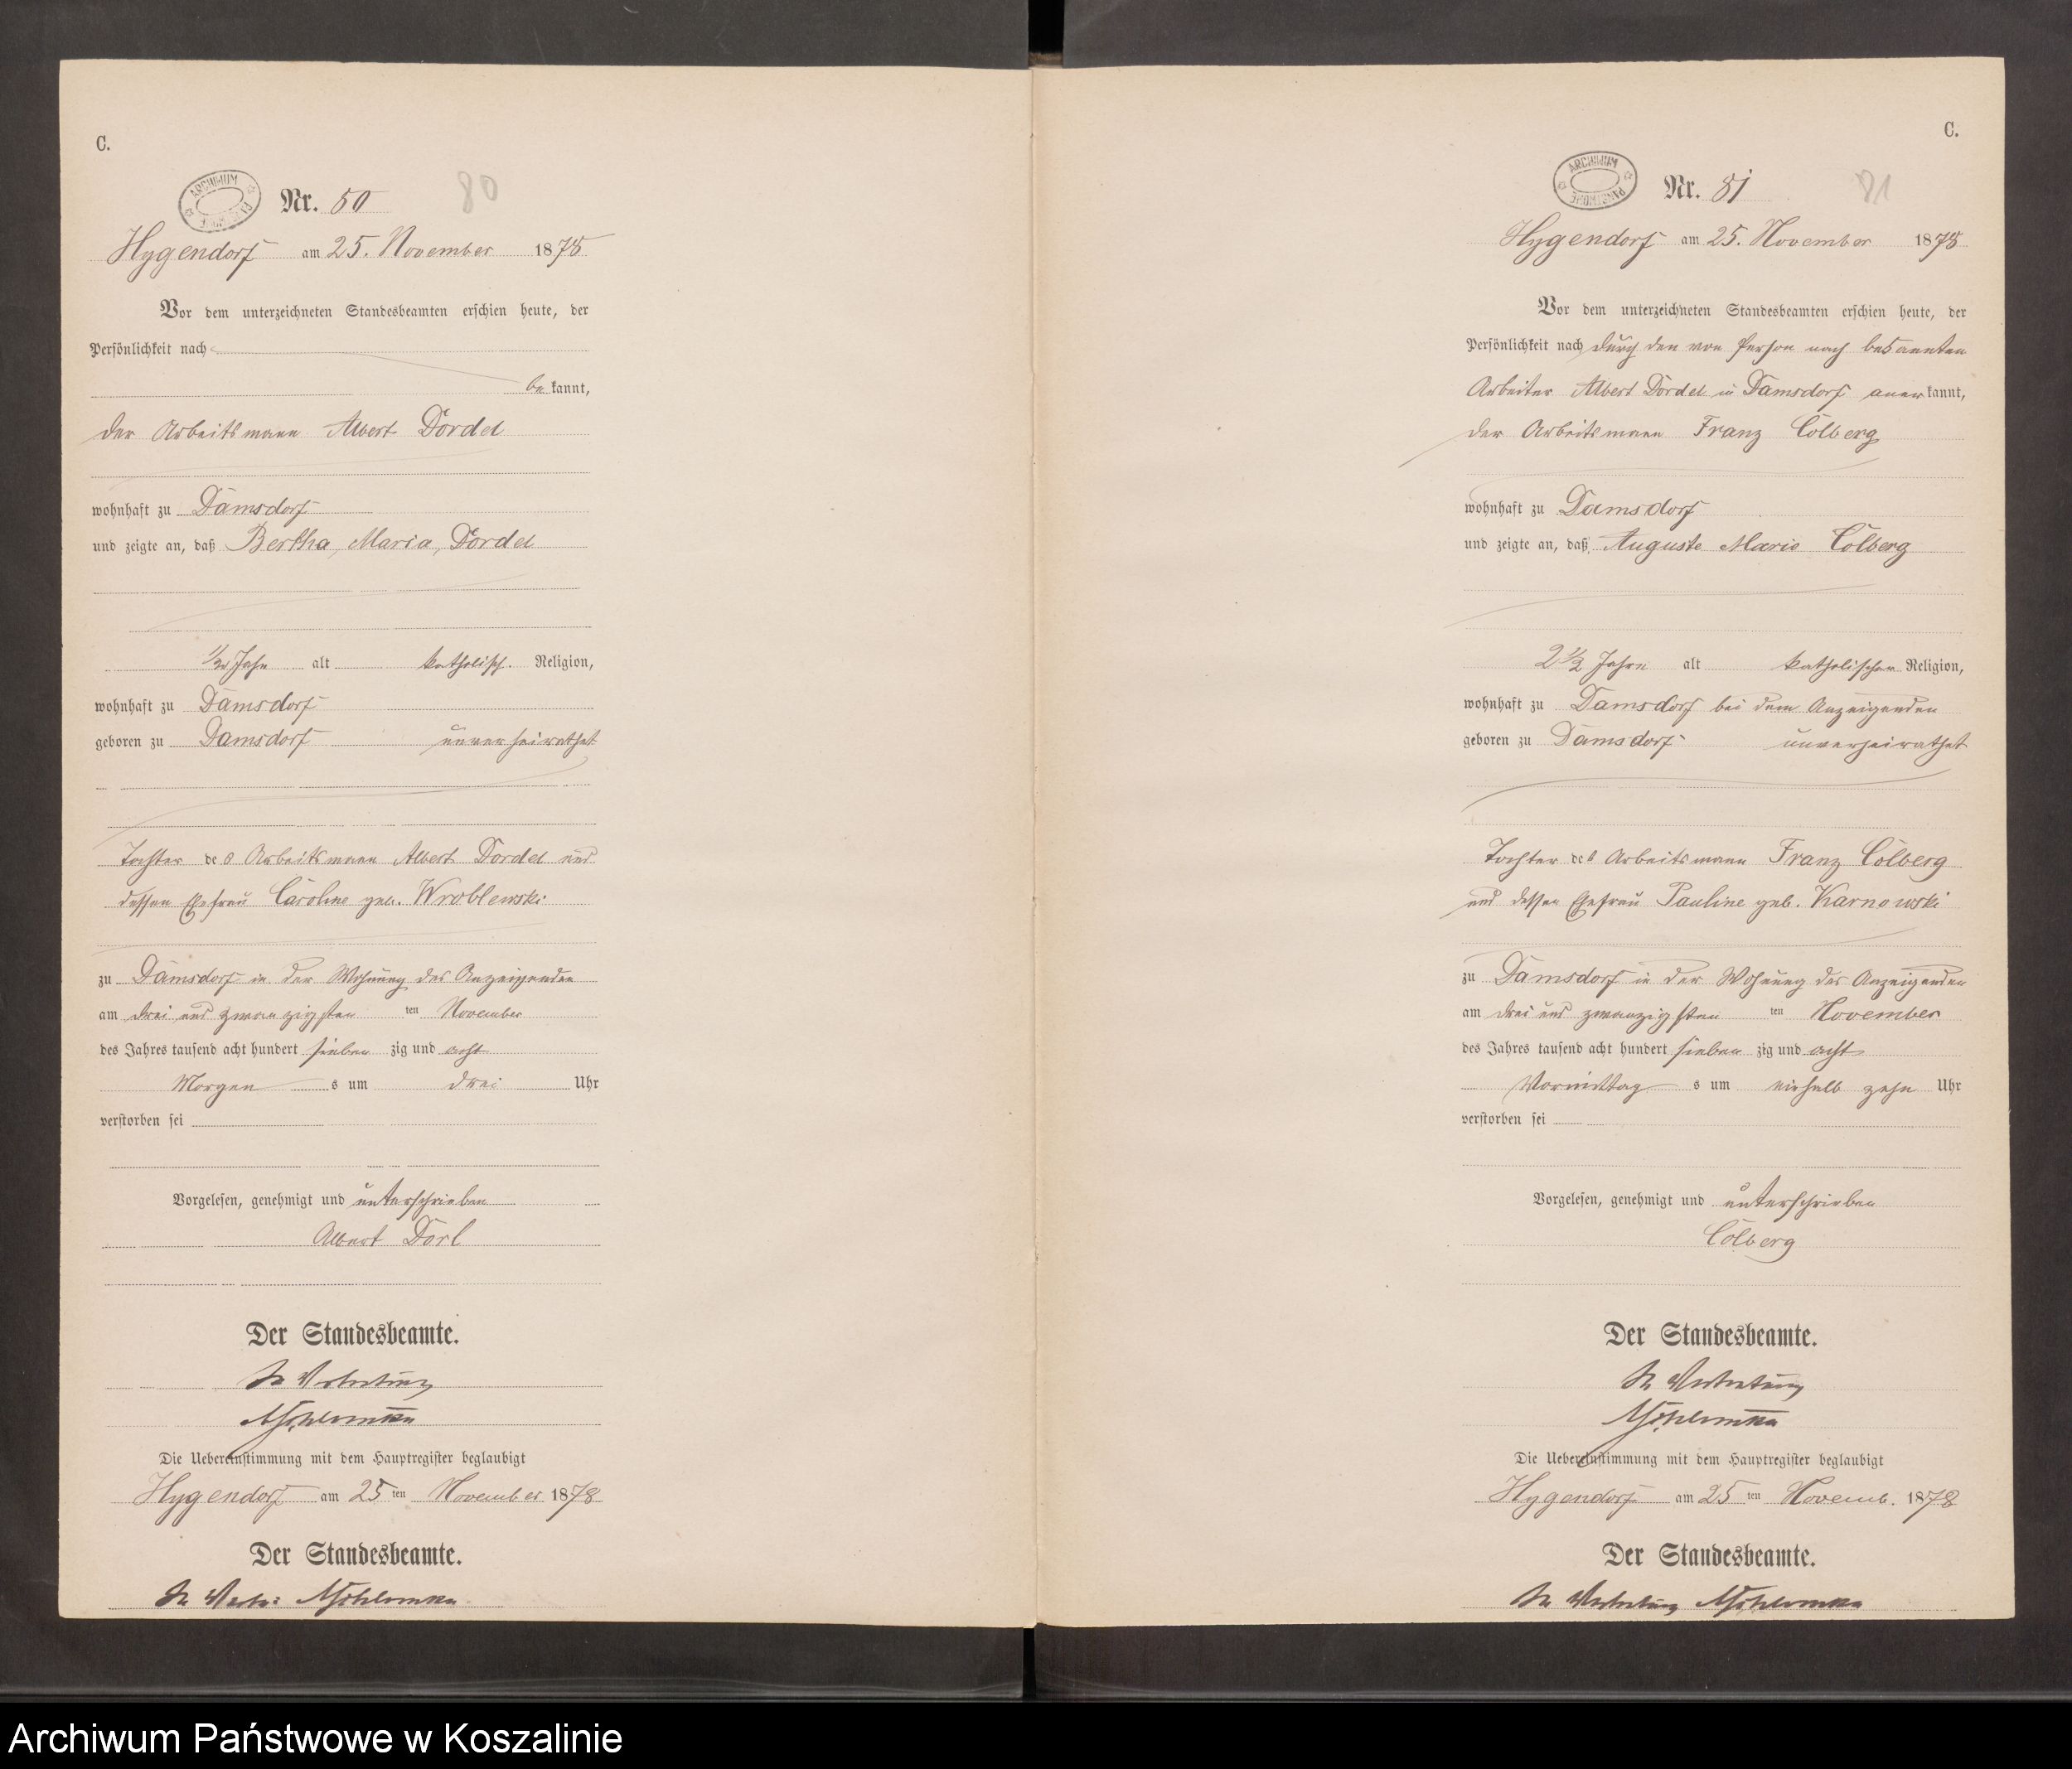 C.
ARCHIWUM PAŃSTWOWE
Nr. 80
80
Hygendorf am 25. November 1878
Vor dem unterzeichneten Standesbeamten erschien heute, der
Persönlichkeit nach
be kannt,
der Arbeitsmann Albert Dordel
wohnhaft zu Damsdorf
und zeigte an, daß Bertha, Maria, Dordel
1/2 Jahr alt katholisch. Religion,
wohnhaft zu Damsdorf
geboren zu Damsdorf unverheirathet
Tochter des Arbeitsmann Albert Dordel und
dessen Ehefrau Caroline geb. Wroblewski
zu Damsdorf in der Wohnung des Anzeigenden
am drei und zwanzigsten ten November
des Jahres tausend acht hundert sieben zig und acht
Morgen s um drei Uhr
verstorben sei
Vorgelesen, genehmigt und unterschrieben
Albert Dorl
Der Standesbeamte.
In Vertretung
Die Uebereinstimmung mit dem Hauptregister beglaubigt
Hygendorf am 25 ten November 1878
Der Standesbeamte.
In Vertr:
C.
ARCHIWUM PAŃSTWOWE
Nr. 81
81
Hygendorf am 25. November 1878
Vor dem unterzeichneten Standesbeamten erschien heute, der
Persönlichkeit nach durch den von Person nach bekannten
Arbeiter Albert Dordel in Damsdorf aner kannt,
der Arbeitsmann Franz Colberg
wohnhaft zu Damsdorf
und zeigte an, daß Auguste Marie Colberg
2 1/2 Jahre alt katholischer Religion,
wohnhaft zu Damsdorf bei dem Anzeigenden
geboren zu Damsdorf unverheirathet
Tochter des Arbeitsmann Franz Colberg
und dessen Ehefrau Pauline geb. Karnowski
zu Damsdorf in der Wohnung des Anzeigenden
am drei und zwanzigsten ten November
des Jahres tausend acht hundert sieben zig und acht
Vormittag s um zehn Uhr
verstorben sei
Vorgelesen, genehmigt und unterschrieben
Colberg
Der Standesbeamte.
In Vertretung
Die Uebereinstimmung mit dem Hauptregister beglaubigt
Hygendorf am 25 ten Novemb. 1878
Der Standesbeamte.
In Vertretung
Archiwum Państwowe w Koszalinie